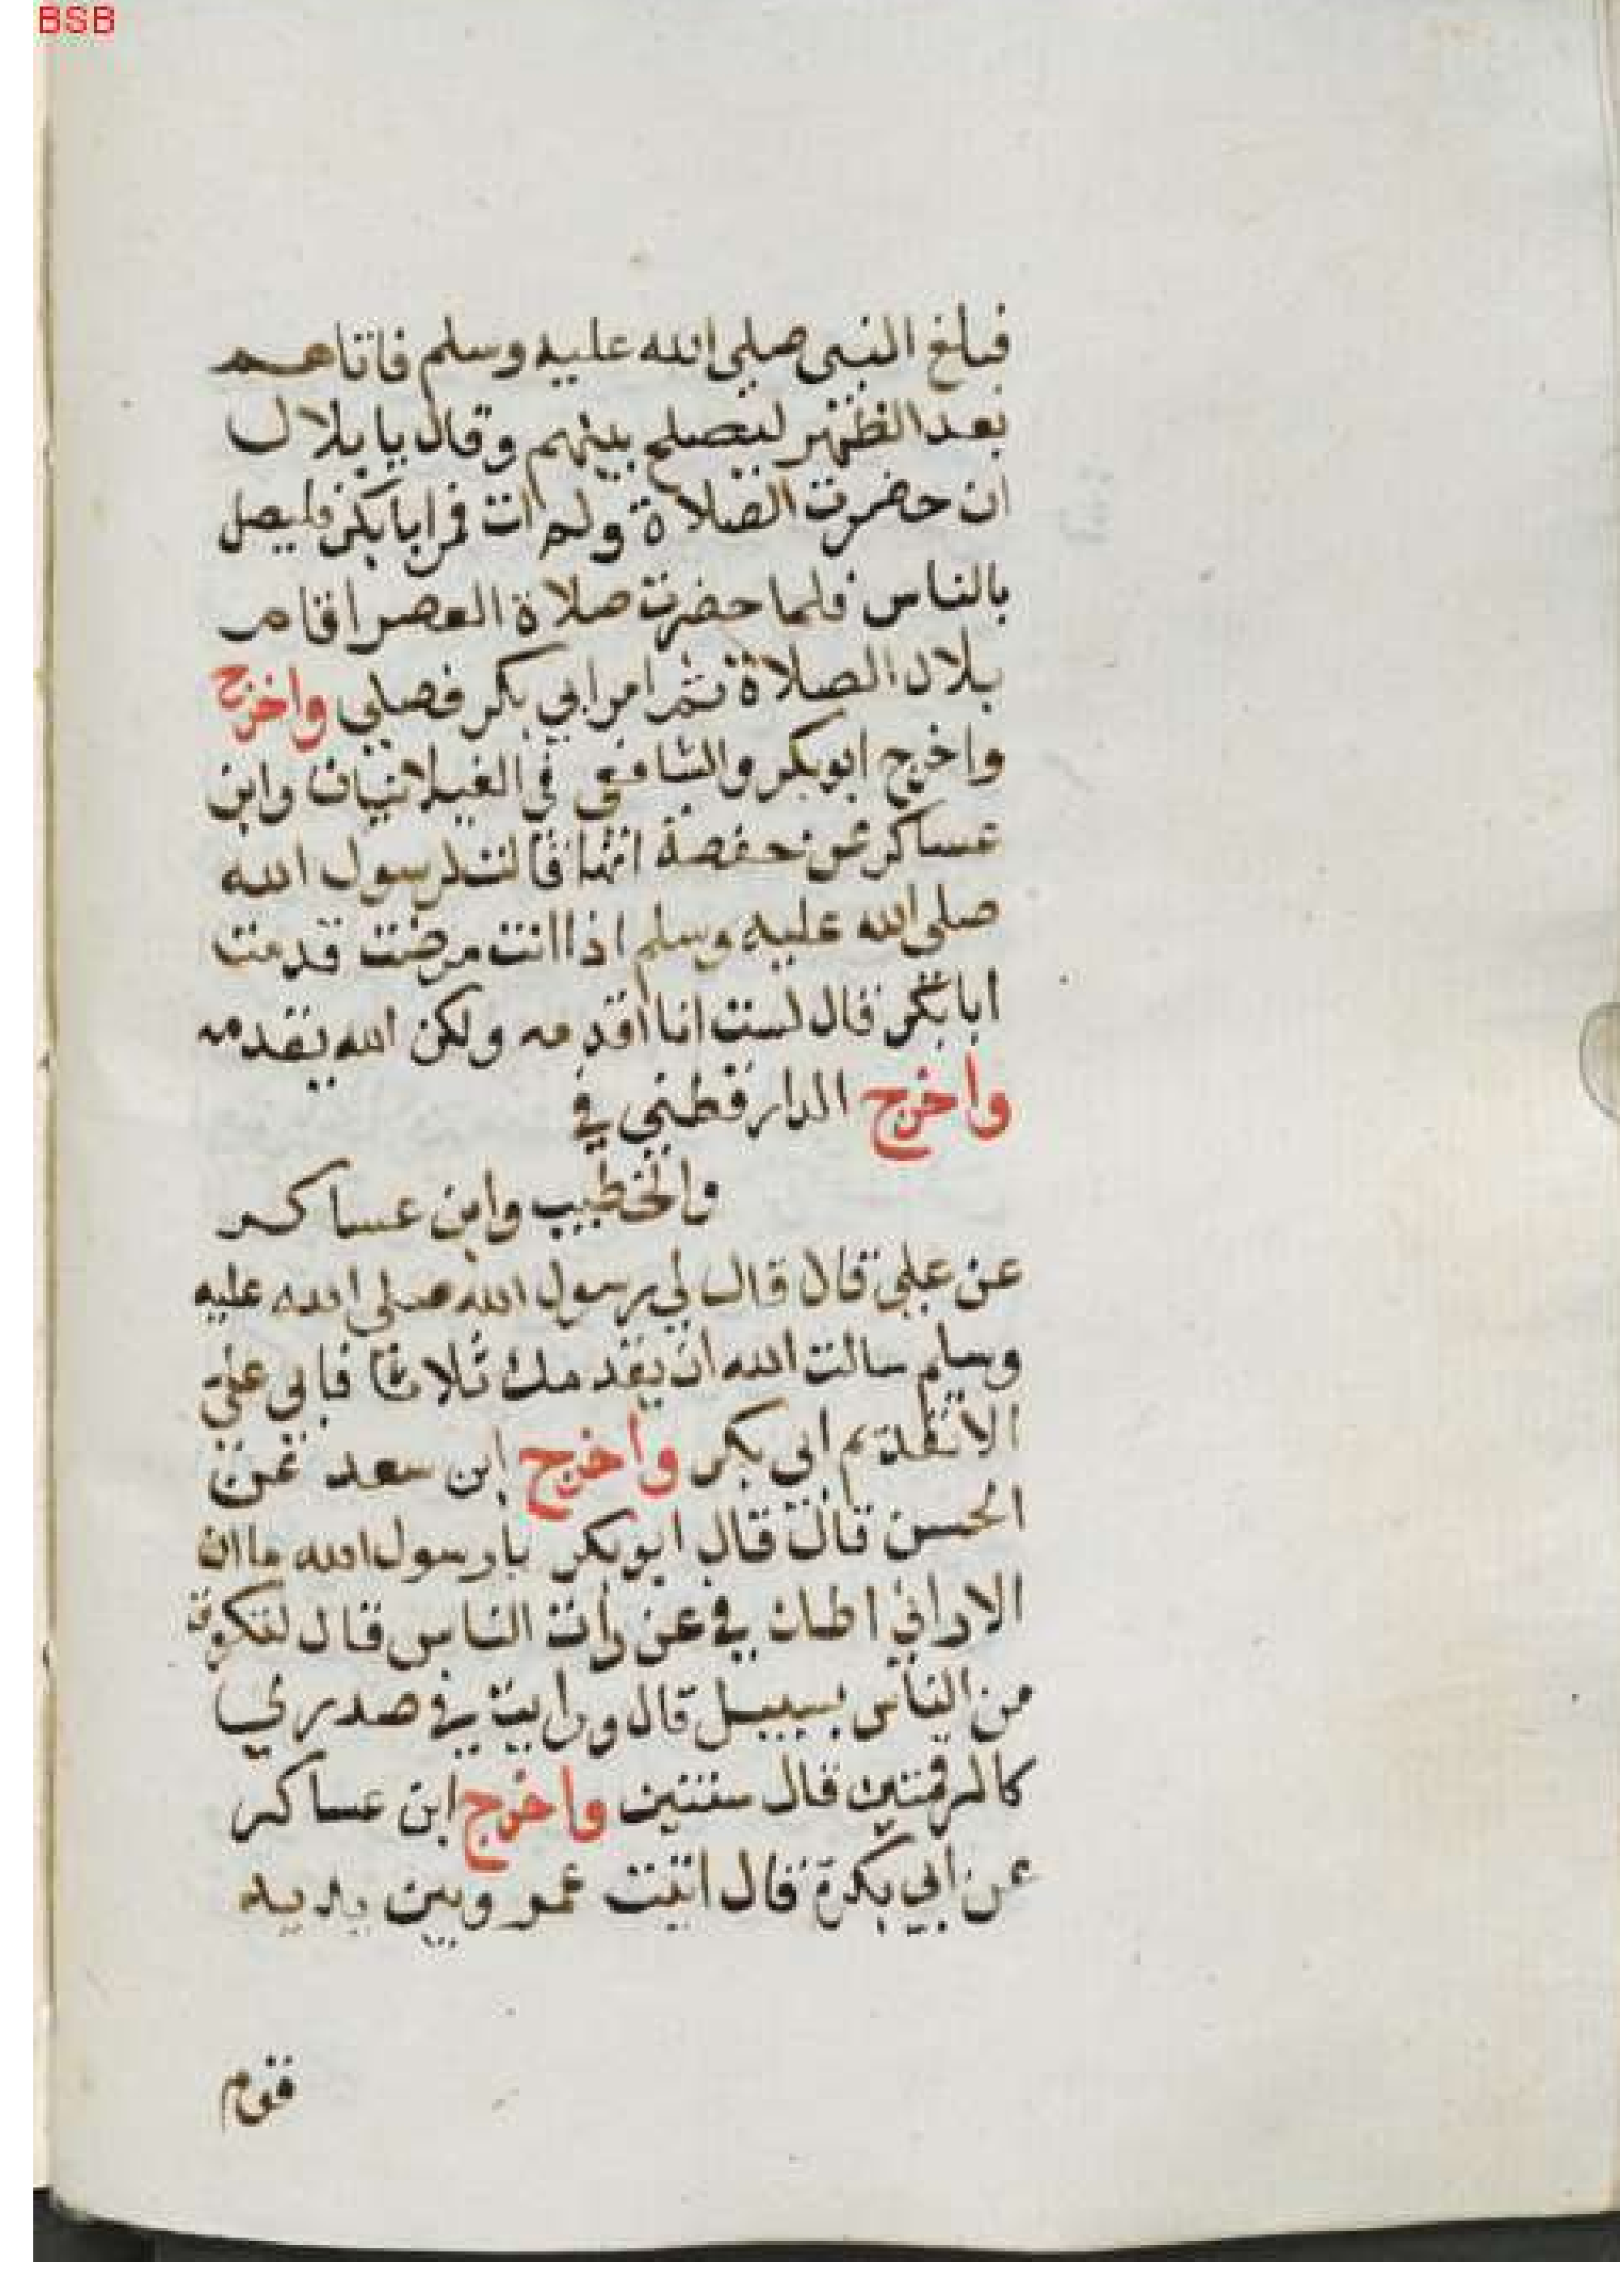 BSB
فبلغ النبي صلى الله عليه وسلم فاتاهم
بعد الظهر ليصلح بينهم وقال يا بلال
ان حضرت الصلاة ولم ات فمر ابا بكر فليصل
بالناس فلما حضرت صلاة العصر اقام
بلال الصلاة ثم امر ابي بكر فصلى واخرج
واخرج ابو بكر والشافعي في الغيلانيات وابن
عساكر عن حفصة انها قالت لرسول الله
صلى الله عليه وسلم اذا انت مرضت قدمت
ابا بكر قال لست انا اقدمه ولكن الله يقدمه
واخرج الدارقطني في
والخطيب وابن عساكر
عن علي قال قال لي رسول الله صلى الله عليه
وسلم سالت الله ان يقدمك ثلاثا فابى علي
الا تقديم ابي بكر واخرج ابن سعد عن
الحسن قال قال ابو بكر يا رسول الله ما ان
الا رانى اطان في عن رات الناس قال لتكون
من الناس بسبيل قال ورايت في صدري
كالرقمتين قال سنتين واخرج ابن عساكر
عن ابي بكرة قال اتيت عمر وبين يديه
قوم